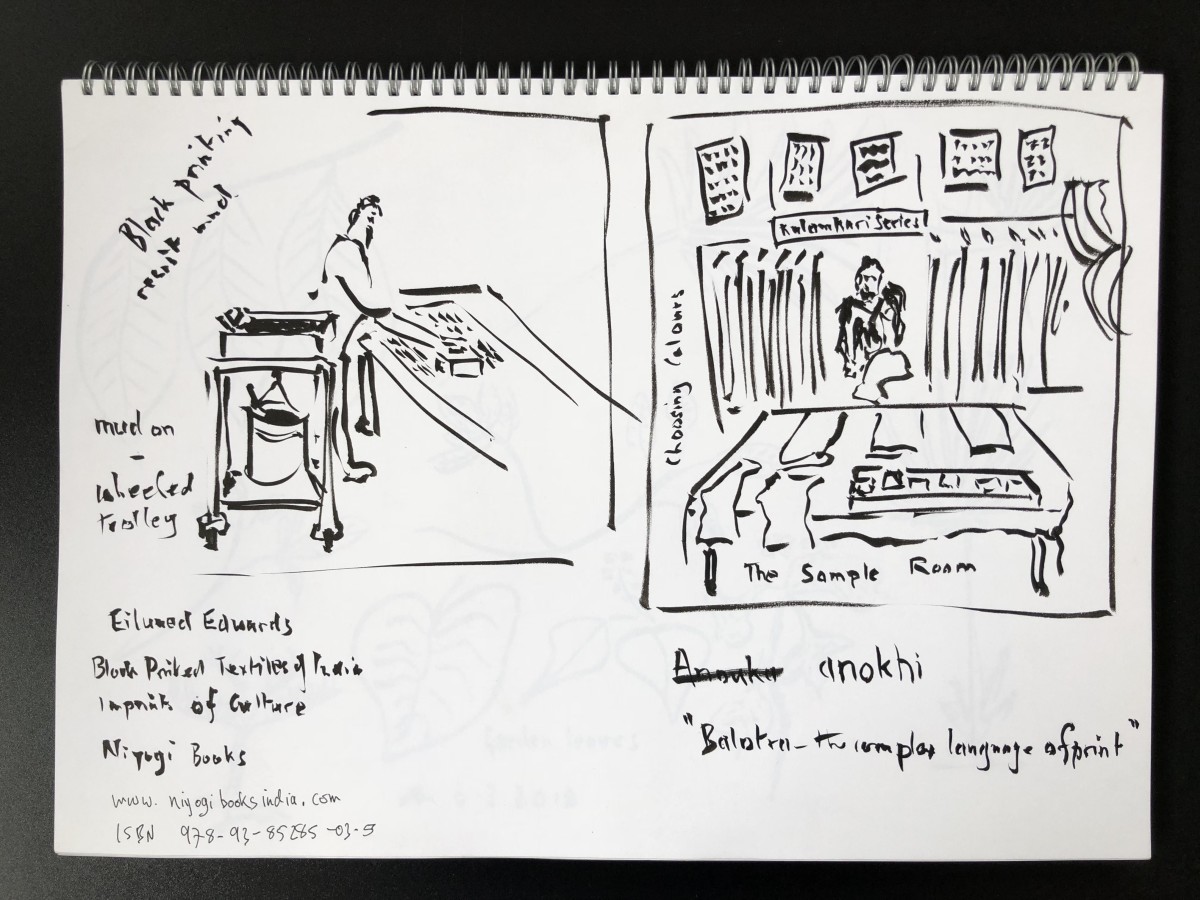 Block printing
resist mud
mud on
-
wheeled
trolley
Kalamkari Series
Choosing Colours
The Sample Room
Eiluned Edwards
Block Printed Textiles of India
Imprints of Culture
Niyogi Books
www. niyogibooksindia.com
ISBN 978-93-85285-03-5
Anouka anokhi
"Balotra - the complex language of print"
Garden leaves